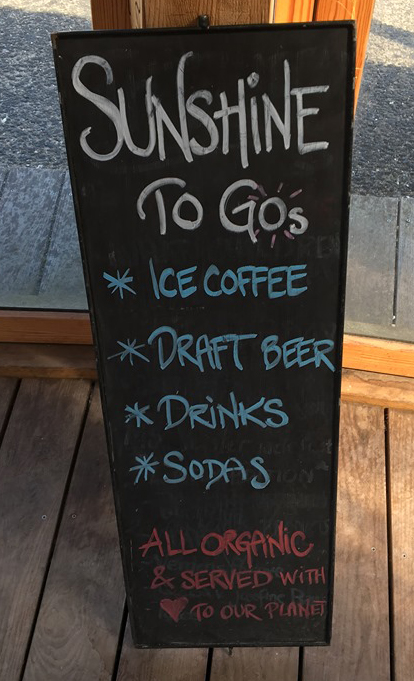 SUNSHINE
TO GOs
* ICE COFFEE
* DRAFT BEER
* DRINKS
* SODAS
ALL ORGANIC
& SERVED WITH
♥ TO OUR PLANET